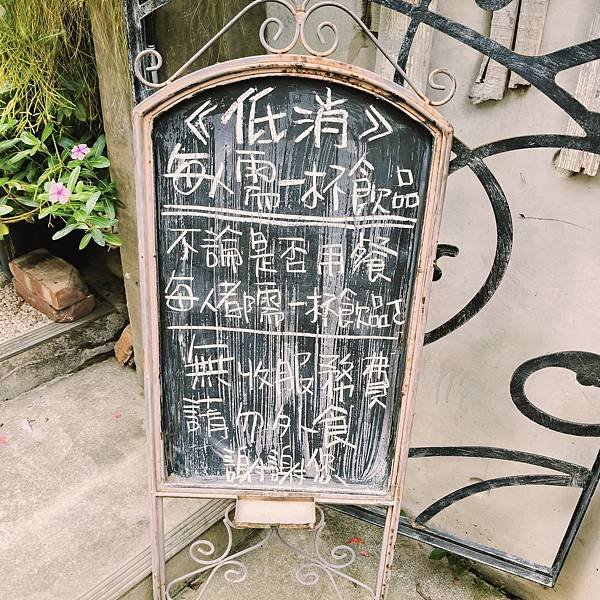 《低消》
每人需一杯飲品
不論是否用餐
每人都需一杯飲品
無收服務費
請勿外食
謝謝您